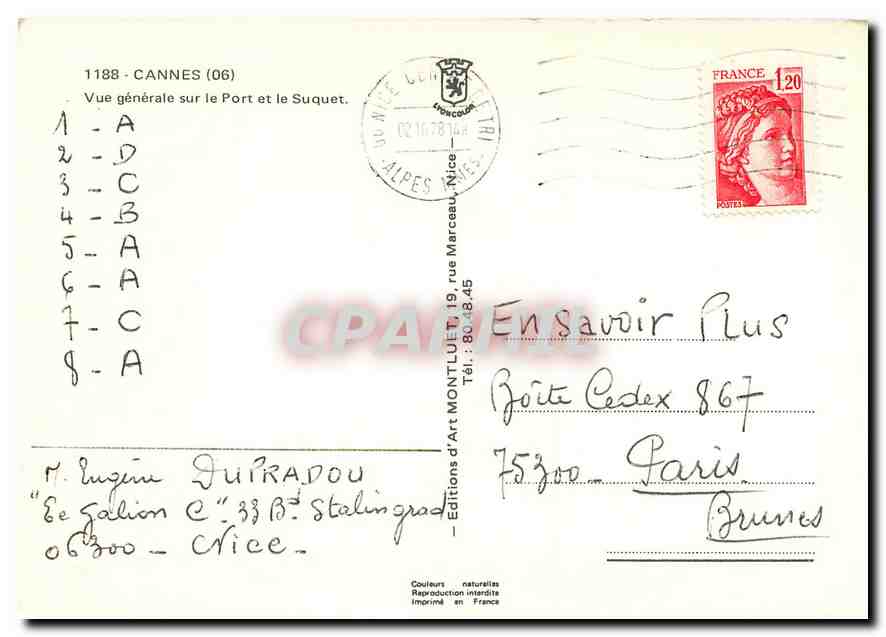 1188 - CANNES (06)
Vue générale sur le Port et le Suquet.
1 - A
2 - D
3 - C
4 - B
5 - A
6 - A
7 - C
8 - A
M. Eugène DUPRADOU
"Le Galion C" 33 Bd Stalingrad
06300 - Nice -
LYONCOLOR
06 NICE CENTRE DE TRI
ALPES MMES
FRANCE 1,20
POSTES
— Editions d'Art MONTLUET, 19, rue Marceau, Nice —
Tél. : 80.48.45
CPAPHIL
En savoir Plus
Boîte Cedex 867
75300 - Paris
Brunes
Couleurs naturelles
Reproduction interdite
Imprimé en France